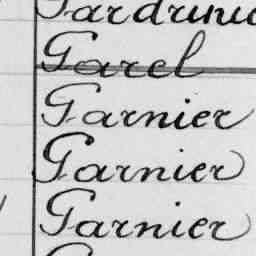 Garel
Garnier
Garnier
Garnier